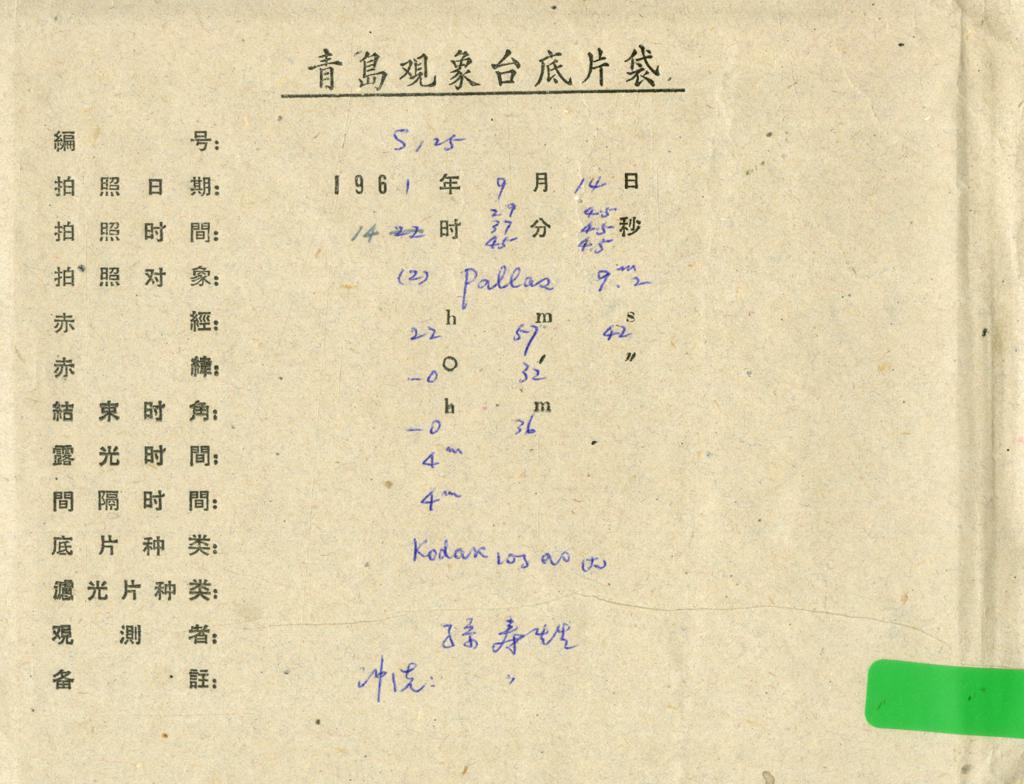 青島观象台底片袋
編号: S, 25
拍照日期: 1961年9月14日
29 45
拍照时間: 14 22 时 37 分 45 秒
45 45
拍照对象: (2) Pallas 9.m2
赤經: 22h 57m 42s
赤緯: -0° 32′ ″
結束时角: -0h 36m
露光时間: 4m
間隔时間: 4m
底片种类: Kodak 103 a0
濾光片种类:
观測者: 孫寿
备註: 冲洗: 〃